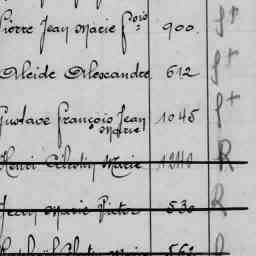 Pierre Jean Marie Fois 900. S+
Alcide Alexandre 612 S+
Gustave François Jean Marie 1045 S+
Henri Célestin Marie 1240 R
Jean Marie Victor 530 R
562 R